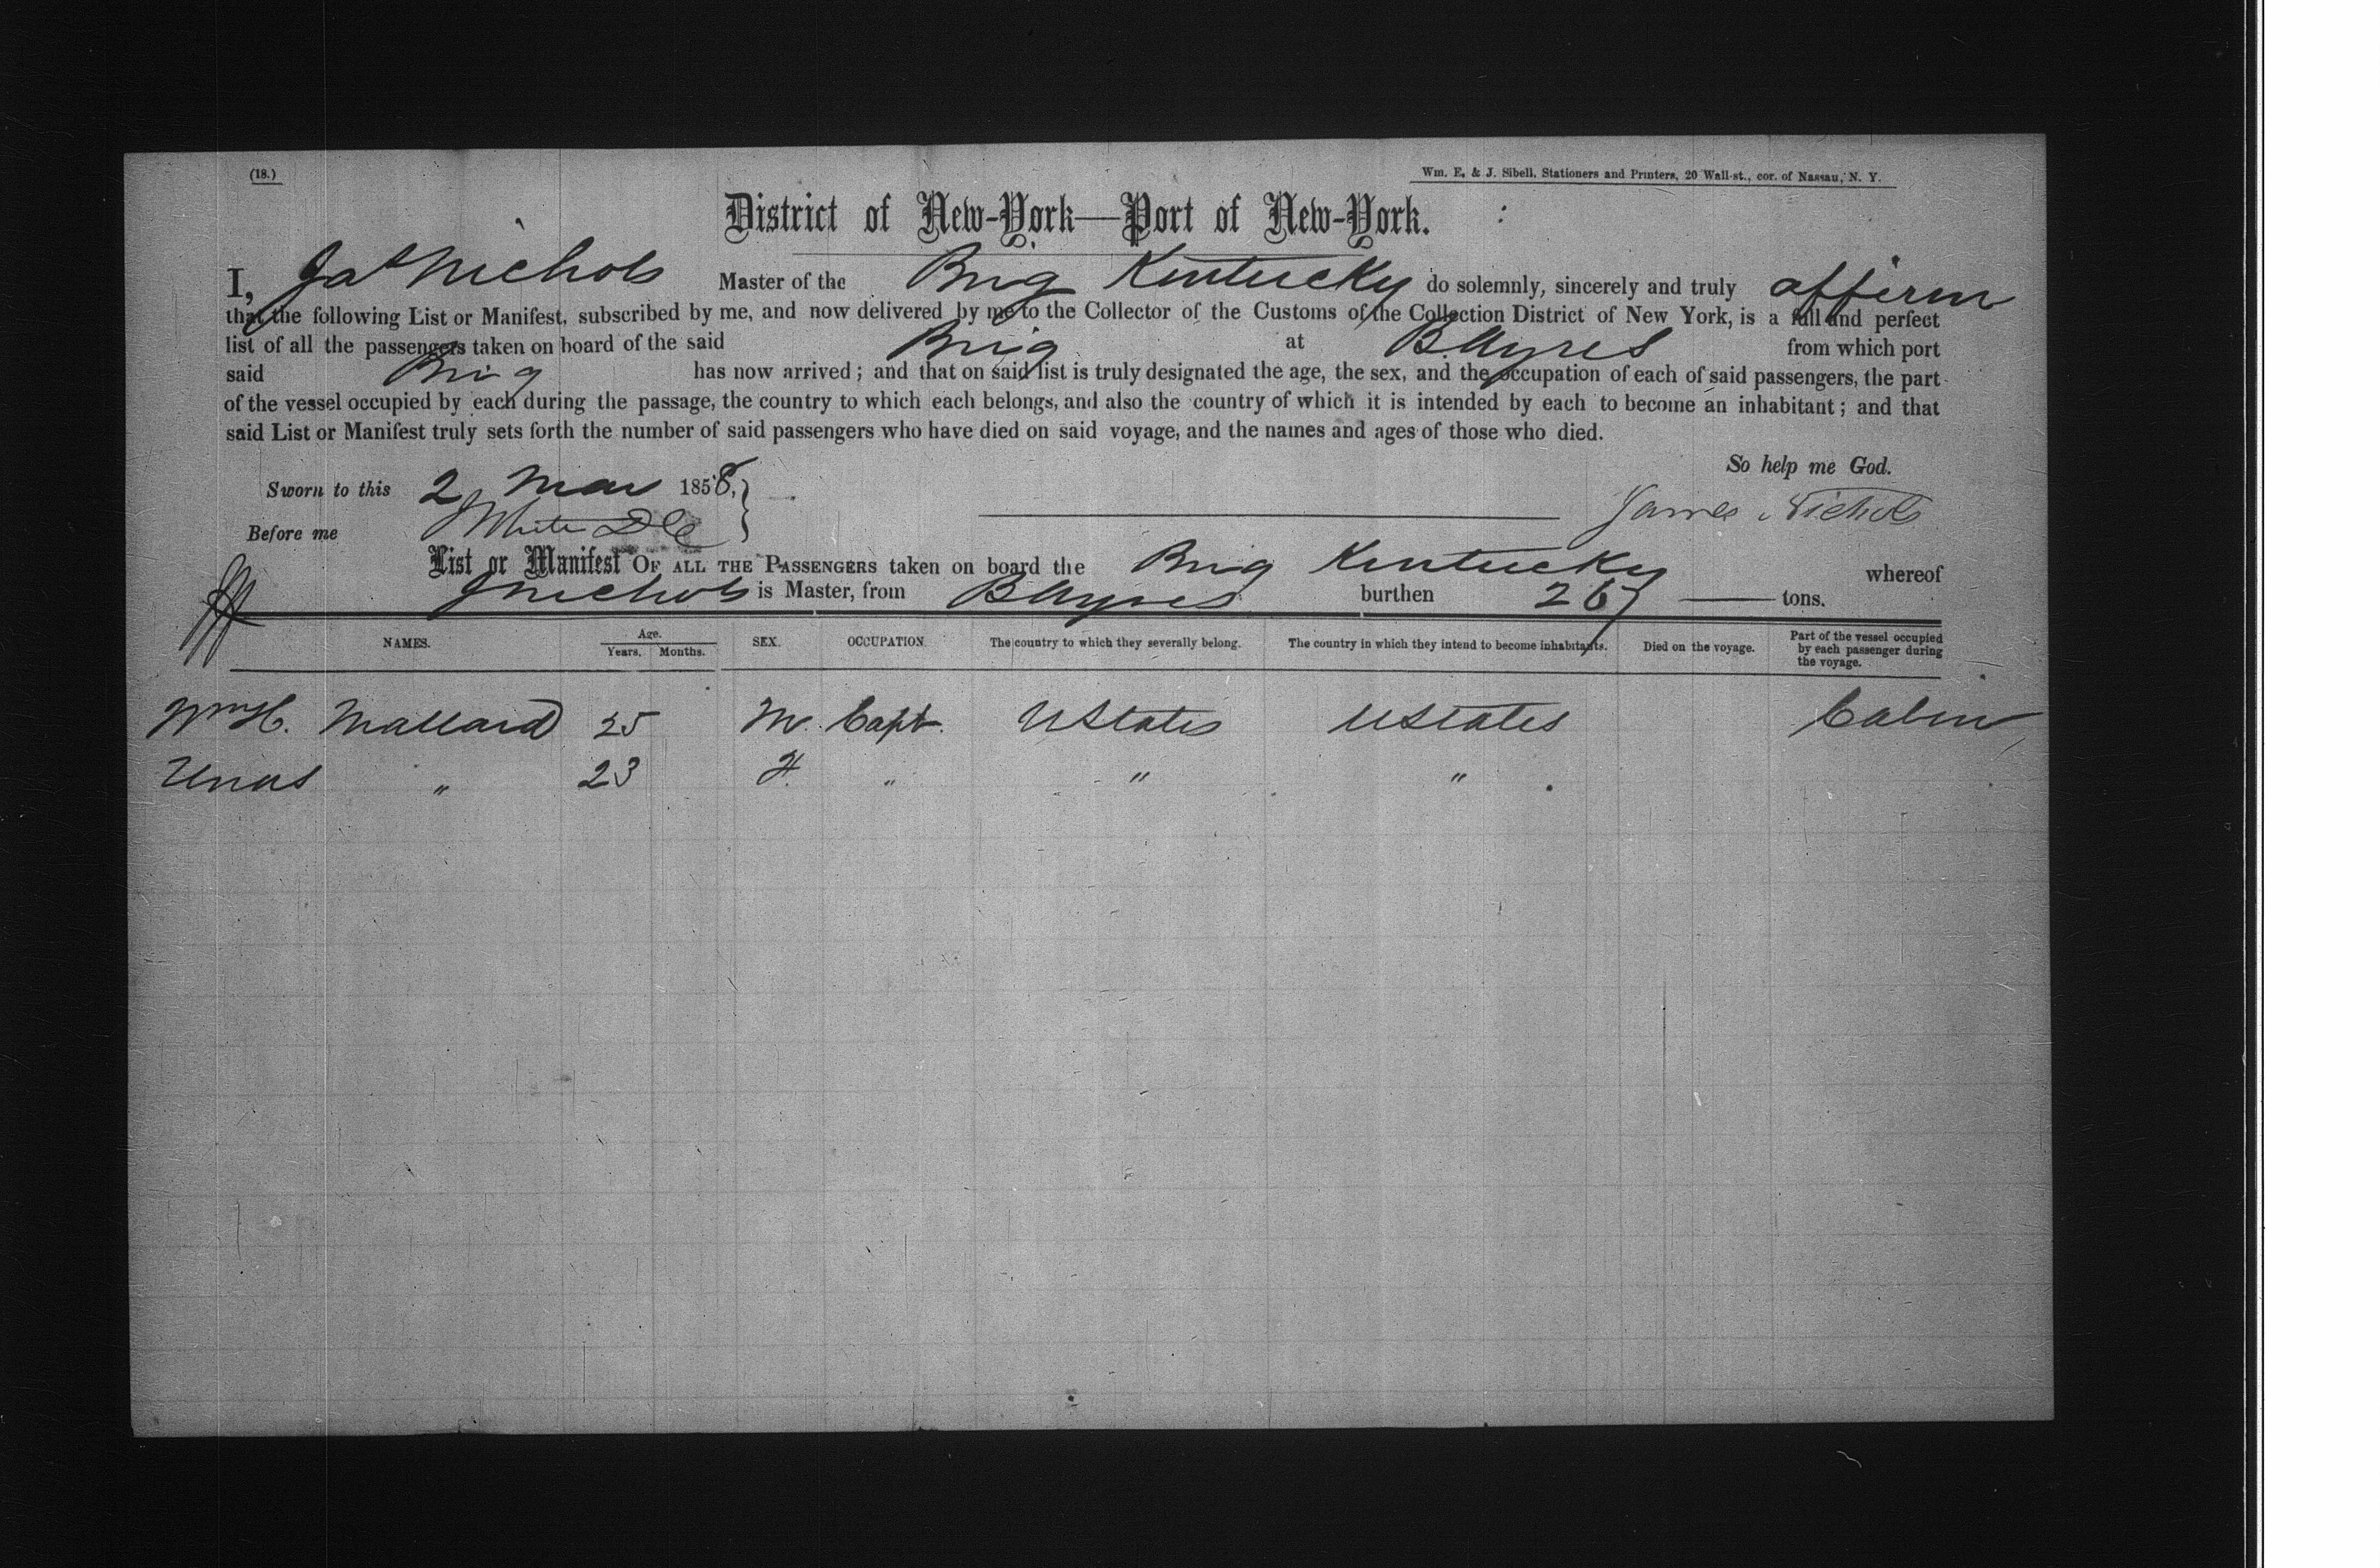 (18.)
Wm. E. & J. Sibell, Stationers and Printers, 20 Wall-st., cor. of Nassau, N. Y.
District of New-York—Port of New-York.
I, Jas Nichols Master of the Brig Kentucky do solemnly, sincerely and truly affirm
that the following List or Manifest, subscribed by me, and now delivered by me to the Collector of the Customs of the Collection District of New York, is a full and perfect
list of all the passengers taken on board of the said Brig at B. Ayres from which port
said Brig has now arrived; and that on said list is truly designated the age, the sex, and the occupation of each of said passengers, the part
of the vessel occupied by each during the passage, the country to which each belongs, and also the country of which it is intended by each to become an inhabitant; and that
said List or Manifest truly sets forth the number of said passengers who have died on said voyage, and the names and ages of those who died.
So help me God.
Sworn to this 2 Mar 1858,
James Nichols
Before me White
List or Manifest OF ALL THE PASSENGERS taken on board the Brig Kentucky whereof
J Nichols is Master, from B Ayres burthen 267 tons.
NAMES. Age. Years. Months. SEX. OCCUPATION. The country to which they severally belong. The country in which they intend to become inhabitants. Died on the voyage. Part of the vessel occupied by each passenger during the voyage.
Wm H. Mallard 25 M. Capt. U States U States Cabin
" 23 F. " " "